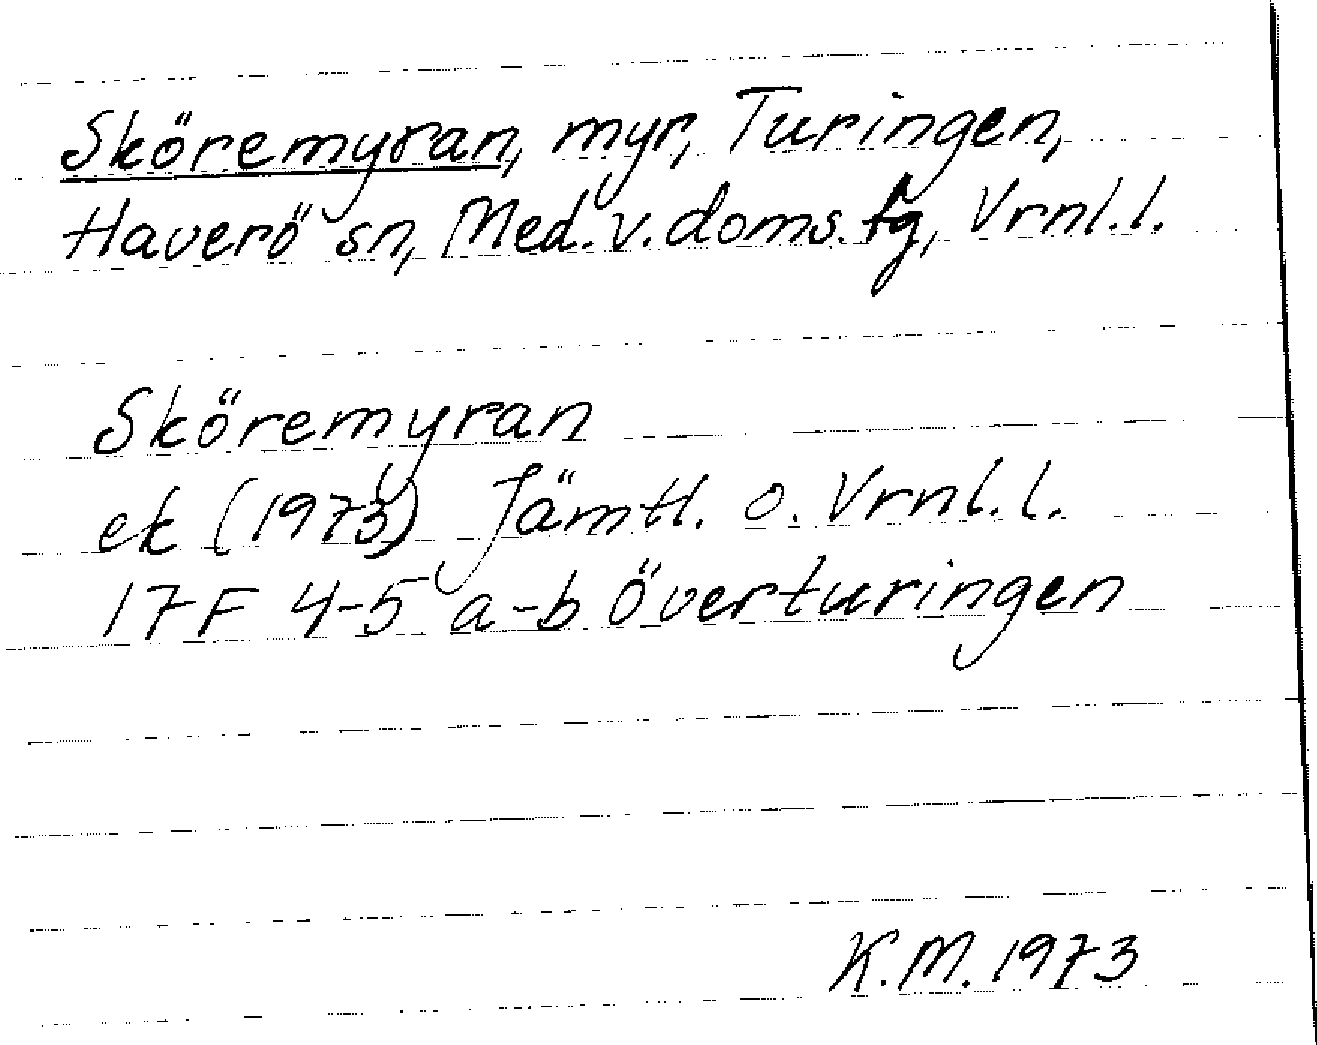 Sköremyran, myr, Turingen,
Haverö sn, Med. v. doms. fg, Vrnl. l.
Sköremyran
ek (1973) Jämtl. o. Vrnl. l.
17F 4-5 a-b Överturingen
K.M. 1973